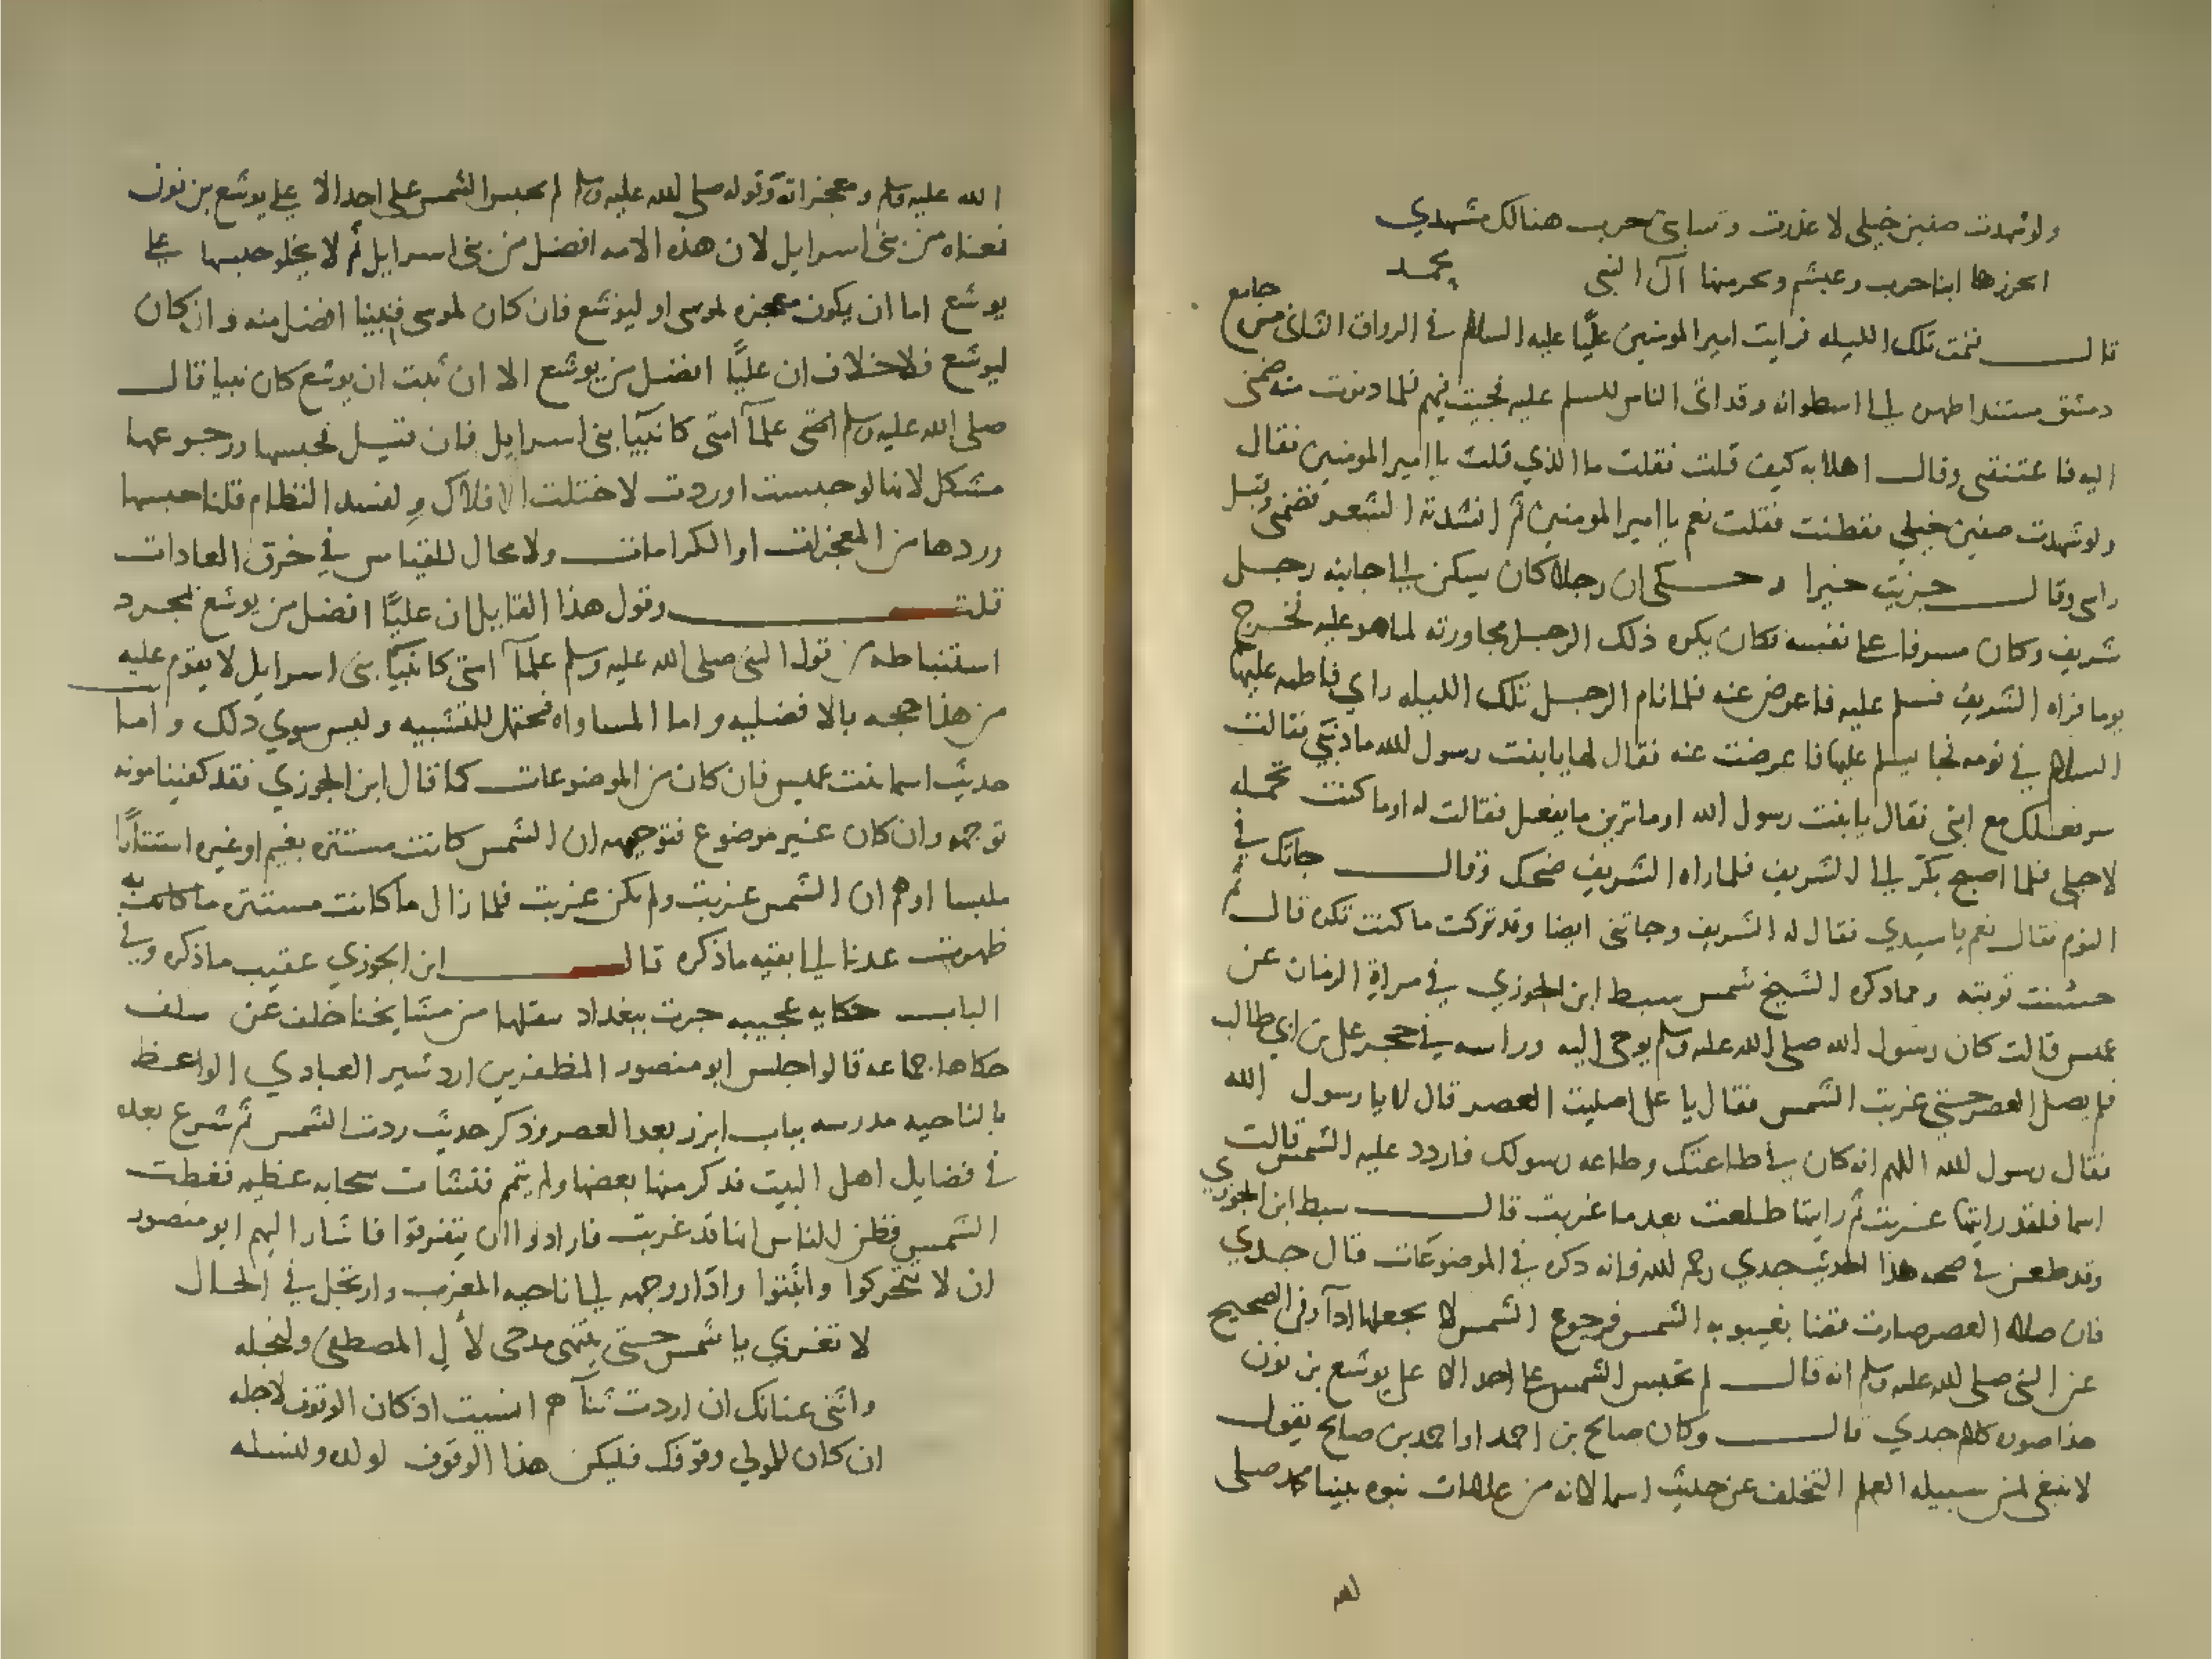 ولو شهدت صفين خيلي لاعذرت وساى حرب هنالك مشهدي
ايحرزها ابنا حرب وعبشم ويحرمها آل النبى محمد
قال فنمت تلك الليله فرايت امير المومنين عليًا عليه السلام في الرواق الثانى من جامع
دمشق مستندا ظهره الى اسطوانه وقد اتى الناس للسلم عليه فجيت فيهم فلما دنوت منه ضمنى
اليه فاعتنقنى وقال اهلا به كيف قلت فقلت ما الذي قلت يا امير المومنين فقال
ولو شهدت صفين خيلي ففطنت فقلت نعم يا امير المومنين ثم انشدته الشعر فضمنى وقبل
راسى وقال جزيت خيرا وحكى ان رجلا كان يسكن الى جانبه رجل
شريف وكان مسرفا على نفسه فكان يكره ذلك الرجل مجاورته لما هو عليه فخرج
يوما فراه الشريف فسلم عليه فاعرض عنه فلما نام الرجل تلك الليله راي فاطمه عليها
السلام في نومه فجا يسلم عليها فاعرضت عنه فقال لها يا بنت رسول الله ما ذنبي فقالت
سر فعلك مع ابنى فقال يا بنت رسول الله او ما ترين ما يفعل فقالت له او ما كنت تحمله
لاجلى فلما اصبح بكر الى الشريف فلما راه الشريف ضحك وقال جاتك في
النوم فقال نعم يا سيدي فقال له الشريف وجاتنى ايضا وقد تركت ما كنت تكره قال ثم
حسنت توبته ومما ذكره الشيخ شمس سبط ابن الجوزي في مراة الزمان عن
عميس قالت كان رسول الله صلى الله عليه وسلم يوحى اليه وراسه في حجر على بن ابي طالب
فلم يصل العصر حتى غربت الشمس فقال يا على اصليت العصر قال لا يا رسول الله
فقال رسول الله اللهم انه كان في طاعتك وطاعه رسولك فاردد عليه الشمس قالت
اسما فلقد رايتها غربت ثم رايتها طلعت بعد ما غربت قال سبط ابن الجوزي
وقد طعن في صحه هذا الحديث جدي رحمه الله فانه ذكره في الموضوعات قال جدي
فان صلاه العصر صارت قضا بغيبوبه الشمس فرجوع الشمس لا يجعلها ادآ وفى الصحيح
عن النبى صلى الله عليه وسلم انه قال لم تحبس الشمس على احد الا على يوشع بن نون
هذا صوره كلام جدي قال وكان صالح بن احمد او احمد بن صالح يقول
لا ينبغى لمن سبيله العلم التخلف عن حديث اسما لانه من علامات نبوه نبينا محمد صلى
الله عليه وسلم ومعجزاته وقوله صلى الله عليه وسلم لم يحبس الشمس على احد الا على يوشع بن نون
فمعناه من بنى اسرايل لان هذه الامه افضل من بنى اسرايل ثم لا يخلو حبسها على
يوشع اما ان يكون معجزه لموسى او ليوشع فان كان لموسى فنبينا افضل منه وان كان
ليوشع فلا خلاف ان عليًّا افضل من يوشع الا ان ثبت ان يوشع كان نبيا قال
صلى الله عليه وسلم علمآ امتى كانبيآ بنى اسرايل فان قيل فحبسها ورجوعها
مشكل لانها لو حبست او ردت لاختلت الافلاك ولفسد النظام قلنا حبسها
وردها من المعجزات او الكرامات ولا مجال للقياس في خرق العادات
قلت وقول هذا القايل ان عليًّا افضل من يوشع لمجرد
استنباطه من قول النبى صلى الله عليه وسلم علمآ امتى كانبيآ بنى اسرايل لا يقوم عليه
من هذا حجه بالافضليه واما المساواه فمحتمل للتشبيه وليس سوي ذلك واما
حديث اسما بنت عميس فان كان من الموضوعات كما قال ابن الجوزي فقد كفينا مونه
توجهه وان كان غير موضوع فتوجيهه ان الشمس كانت مستتره بغيم او غيره استتارًا
ملبسا اوهم ان الشمس غربت ولم يكن غربت فلما زال ما كانت مستتره به
ظهرت عدنا الى بقيه ما ذكره قال ابن الجوزي عقيب ما ذكره وفي
الباب حكايه عجيبه جرت ببغداد نقلها من مشايخنا خلف عن سلف
حكاها جماعه قالوا جلس ابو منصور المظفر بن اردشير العبادي الواعظ
بالناحيه مدرسه بباب ابرز بعد العصر وذكر حديث ردت الشمس ثم شرع بعده
في فضايل اهل البيت فذكر منها بعضها ولم يتم فنشات سحابه عظيمه فغطت
الشمس فظن الناس انها قد غربت فارادوا ان يتفرقوا فاشار اليهم ابو منصور
ان لا تتحركوا واثبتوا وادار وجهه الى ناحيه المغرب وارتجل في الحال
لا تغربي يا شمس حتى ينتهى مدحى لآل المصطفى ولنجله
واثنى عنانك ان اردت ثنآهم انسيت اذ كان الوقوف لاجله
ان كان للمولي وقوفك فليكن هذا الوقوف لولده ولنسله